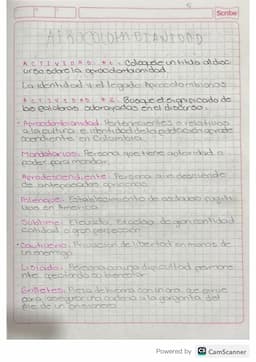 5
Scribe
AFROCOLOMBIANIDAD
ACTIVIDAD #1: Coloque un titulo al disc
urso sobre la afrocolombianidad.
La identidad y el legado Afrocolombiano
ACTIVIDAD #2: Busque el significado de
las palabras subrayadas en el discurso.
Afrocolombianidad: Pertenecientes o relativos
a la cultura e identidad de la población afrode
scendiente en Colombia.
Mandatarios: Persona que tiene autoridad o
poder para mandar.
Afrodescendiente: Persona que desciende
de antepasados africanos.
Palenque: Establecimiento de esclavos fugiti
vos en América.
Sublime: Elevado
calidad o gran perfección
Cautiverio: Privación de libertad en manos de
un enemigo.
Lisiado: Persona con una dificultad permane
nte
Grilletes: Pieza de hierro con un aro que sirve
para asegurar una cadena a la garganta del
pie de un prisionero
Powered by CS CamScanner